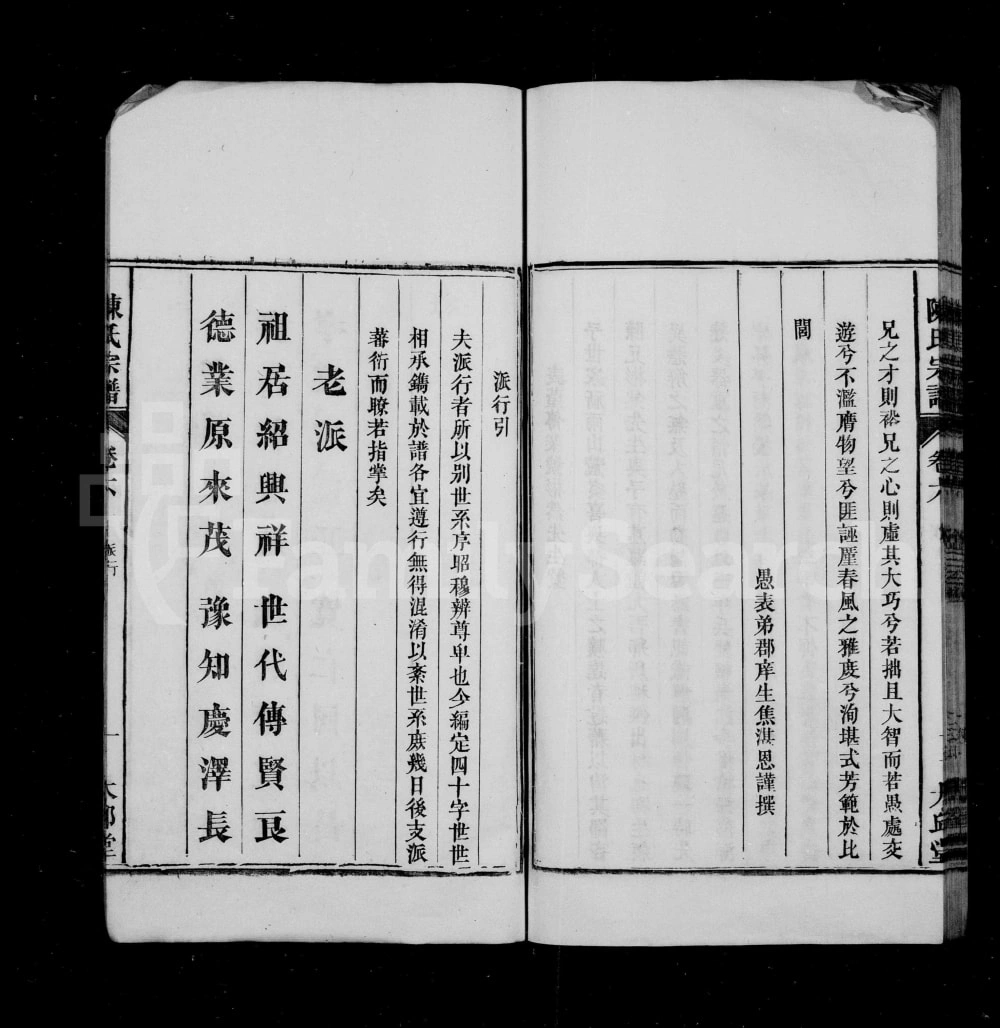 陳氏宗譜
卷六
大邱堂
兄之才則裕兄之心則虛其大巧兮若拙且大智而若愚處交
遊兮不濫膺物望兮匪誣壓春風之雅度兮洵堪式芳範於比
閭
愚表弟郡庠生焦湛恩謹撰
派行引
夫派行者所以别世系序昭穆辨尊卑也今編定四十字世世
相承鐫載於譜各宜遵行無得混淆以紊世系庶幾日後支派
蕃衍而瞭若指掌矣
老派
祖居紹興祥世代傳賢良
德業原來茂豫知慶澤長
陳氏宗譜
卷六
派行
一
大邱堂
FamilySearch